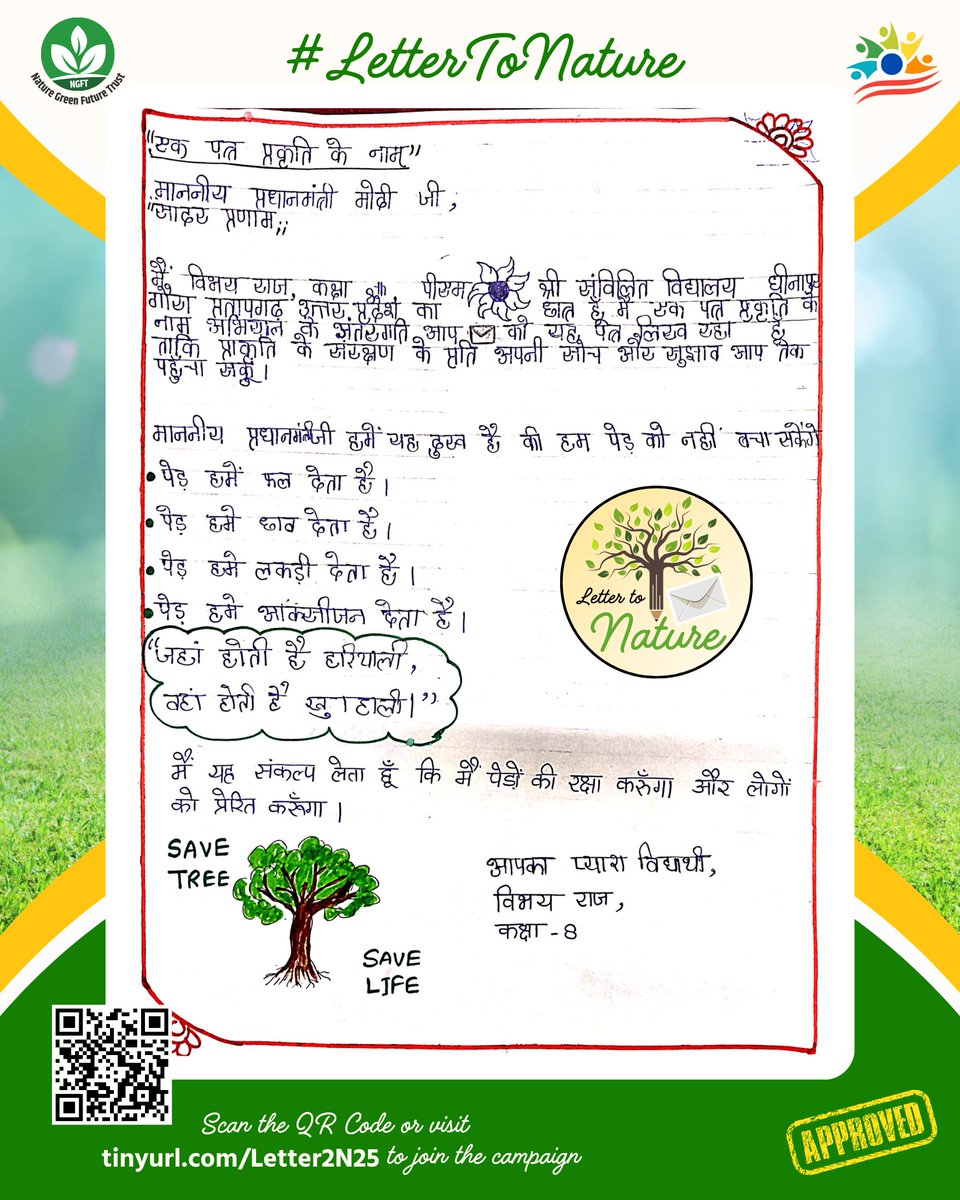 NGFT
Nature Green Future Trust
#LetterToNature
"एक पत्र प्रकृति के नाम"
माननीय प्रधानमंत्री मोदी जी,
"सादर प्रणाम,,
मैं विभय राज, कक्षा पीएम श्री संविलित विद्यालय धीनापुर
गौरा प्रतापगढ़ उत्तर प्रदेश का छात्र हूँ मैं एक पत्र प्रकृति के
नाम अभियान के अंतरगति आप को यह पत्र लिख रहा हूँ
ताकि प्राकृति के संरक्षण के प्रति अपनी सोच और सुझाव आप तक
पहुंचा सकूँ।
माननीय प्रधानमंत्रीजी हमें यह दुख है की हम पेड़ को नहीं बचा सकेंगे
• पेड़ हमें फल देता है।
• पेड़ हमे छाव देता है।
• पेड़ हमे लकड़ी देता है।
• पेड़ हमे आक्सीजन देता है।
"जहां होती है हरियाली,
वहां होती है खुशहाली।"
Letter to
Nature
मैं यह संकल्प लेता हूँ कि मैं पेडों की रक्षा करुँगा और लोगों
को प्रेरित करूँगा।
SAVE
TREE
SAVE
LIFE
आपका प्यारा विद्यार्थी,
विभय राज,
कक्षा - 8
Scan the QR Code or visit
tinyurl.com/Letter2N25 to join the campaign
APPROVED